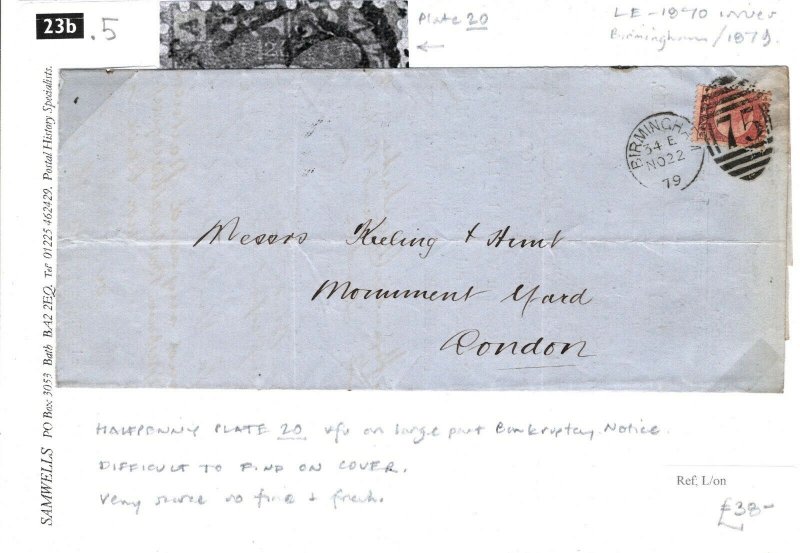 23b
.5
Plate 20
Birmingham/1979.
SAMWELLS PO Box 3053 Bath BA2 2EQ. Tel 01225 462429. Postal History Specialists.
BIRMINGHAM
34 E
NO22
79
75
Messrs Keeling & Hunt
Monument Yard
London
HALFPENNY PLATE 20 vfu on large part Bankruptcy Notice.
DIFFICULT TO FIND ON COVER.
Very scarce so fine & fresh.
Ref. L/on
£38-